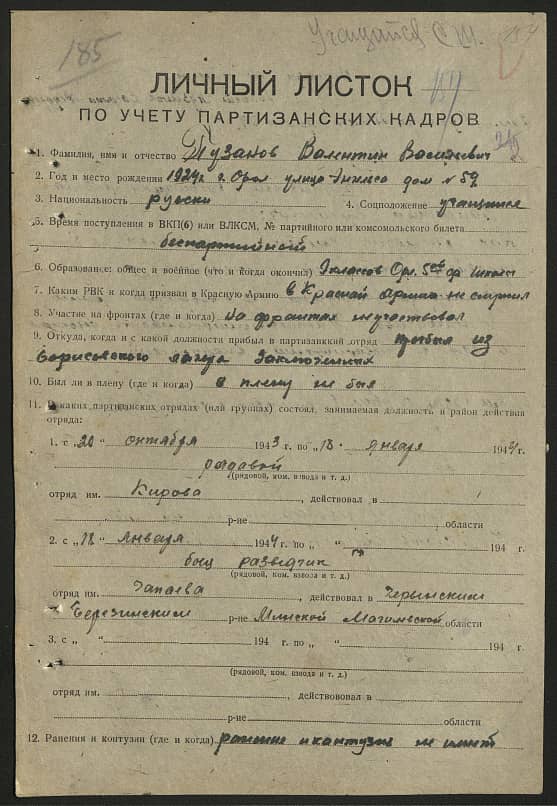 185
ЛИЧНЫЙ ЛИСТОК
ПО УЧЕТУ ПАРТИЗАНСКИХ КАДРОВ
1. Фамилия, имя и отчество Пузанов Валентин Васильевич
2. Год и место рождения 1924 г г. Орел улица дом № 59
3. Национальность русски 4. Соцположение учащийся
5. Время поступления в ВКП(б) или ВЛКСМ, № партийного или комсомольского билета
беспартийный
6. Образование: общее и военное (что и когда окончил) 7 класов Орл. 5ой школы
7. Каким РВК и когда призван в Красную Армию в Красной Армии не служил
8. Участие на фронтах (где и когда) на фронтах не участвовал
9. Откуда, когда и с какой должности прибыл в партизанский отряд прибыл из
Борисовского лагеря заключенных
10. Был ли в плену (где и когда) в плену не был
11. В каких партизанских отрядах (или группах) состоял, занимаемая должность и район действия
отряда:
1. с „20“ октября 1943 г. по „18“ января 1944 г.
рядовой
(рядовой, ком. взвода и т. д.)
отряд им. Кирова, действовал в
р-не области
2. с „18“ Января 1944 г. по „ “ 194 г.
боец разведчик
(рядовой, ком. взвода и т. д.)
отряд им. Чапаева, действовал в Червенским
Березинским р-не Минской Могилевской области
3. с „ “ 194 г. по „ “ 194 г.
(рядовой, ком. взвода и т. д.)
отряд им. , действововал в
р-не области
12. Ранения и контузии (где и когда) ранение и кантузие не имет